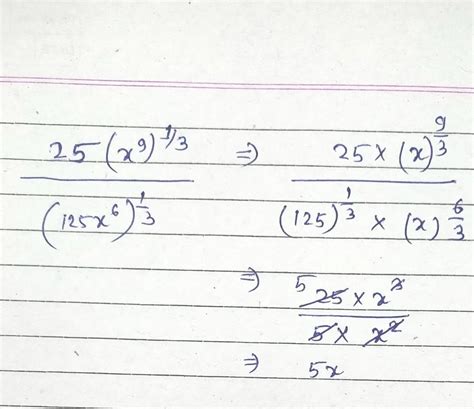 25(x⁹)^1/3 / (125x⁶)^1/3 ⇒ 25 × (x)^9/3 / (125)^1/3 × (x)^6/3
⇒ 5 25 × x³ / 5 × x²
⇒ 5x